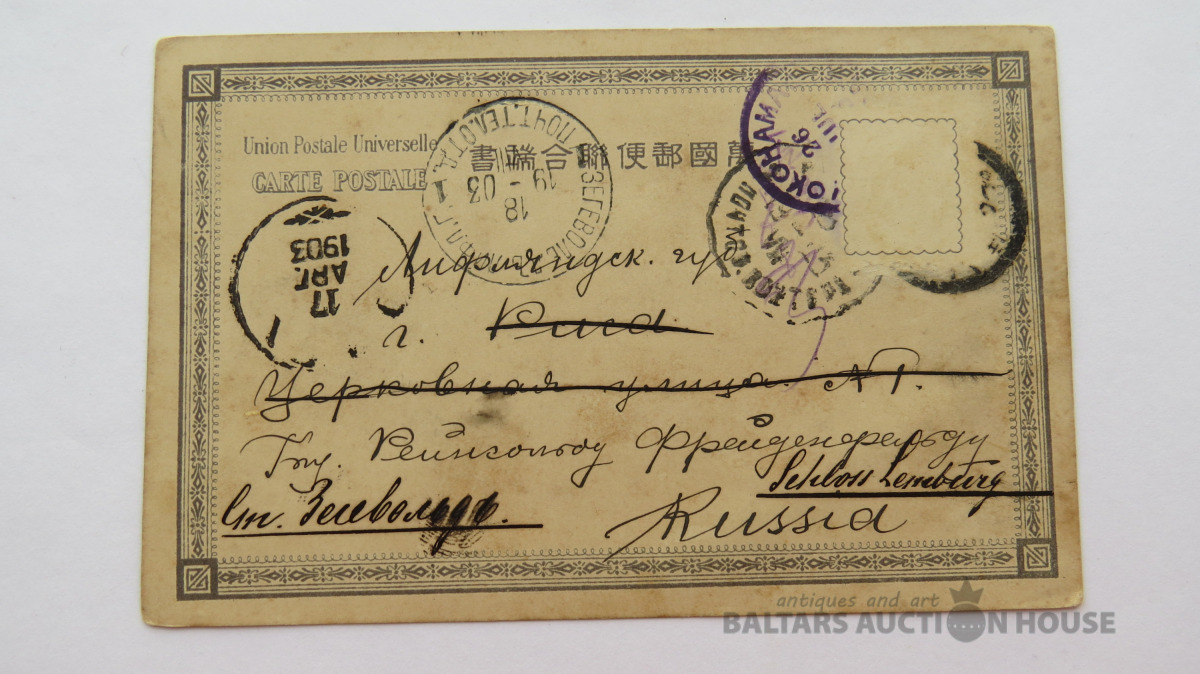 Union Postale Universelle
萬國郵便聯合端書
CARTE POSTALE
YOKOHAMA
26
ПОЧТ.ТЕЛ.ОТД.
18
19-03
1
17
АВГ.
1903
1
Лифляндск. губ.
г. Рига.
Церковная улица. №1.
Гну. Рейнгольду Фрейденфельду
Schloss Lemburg
Ст. Зегевольдъ.
Russia
antiques and art
BALTARS AUCTION HOUSE